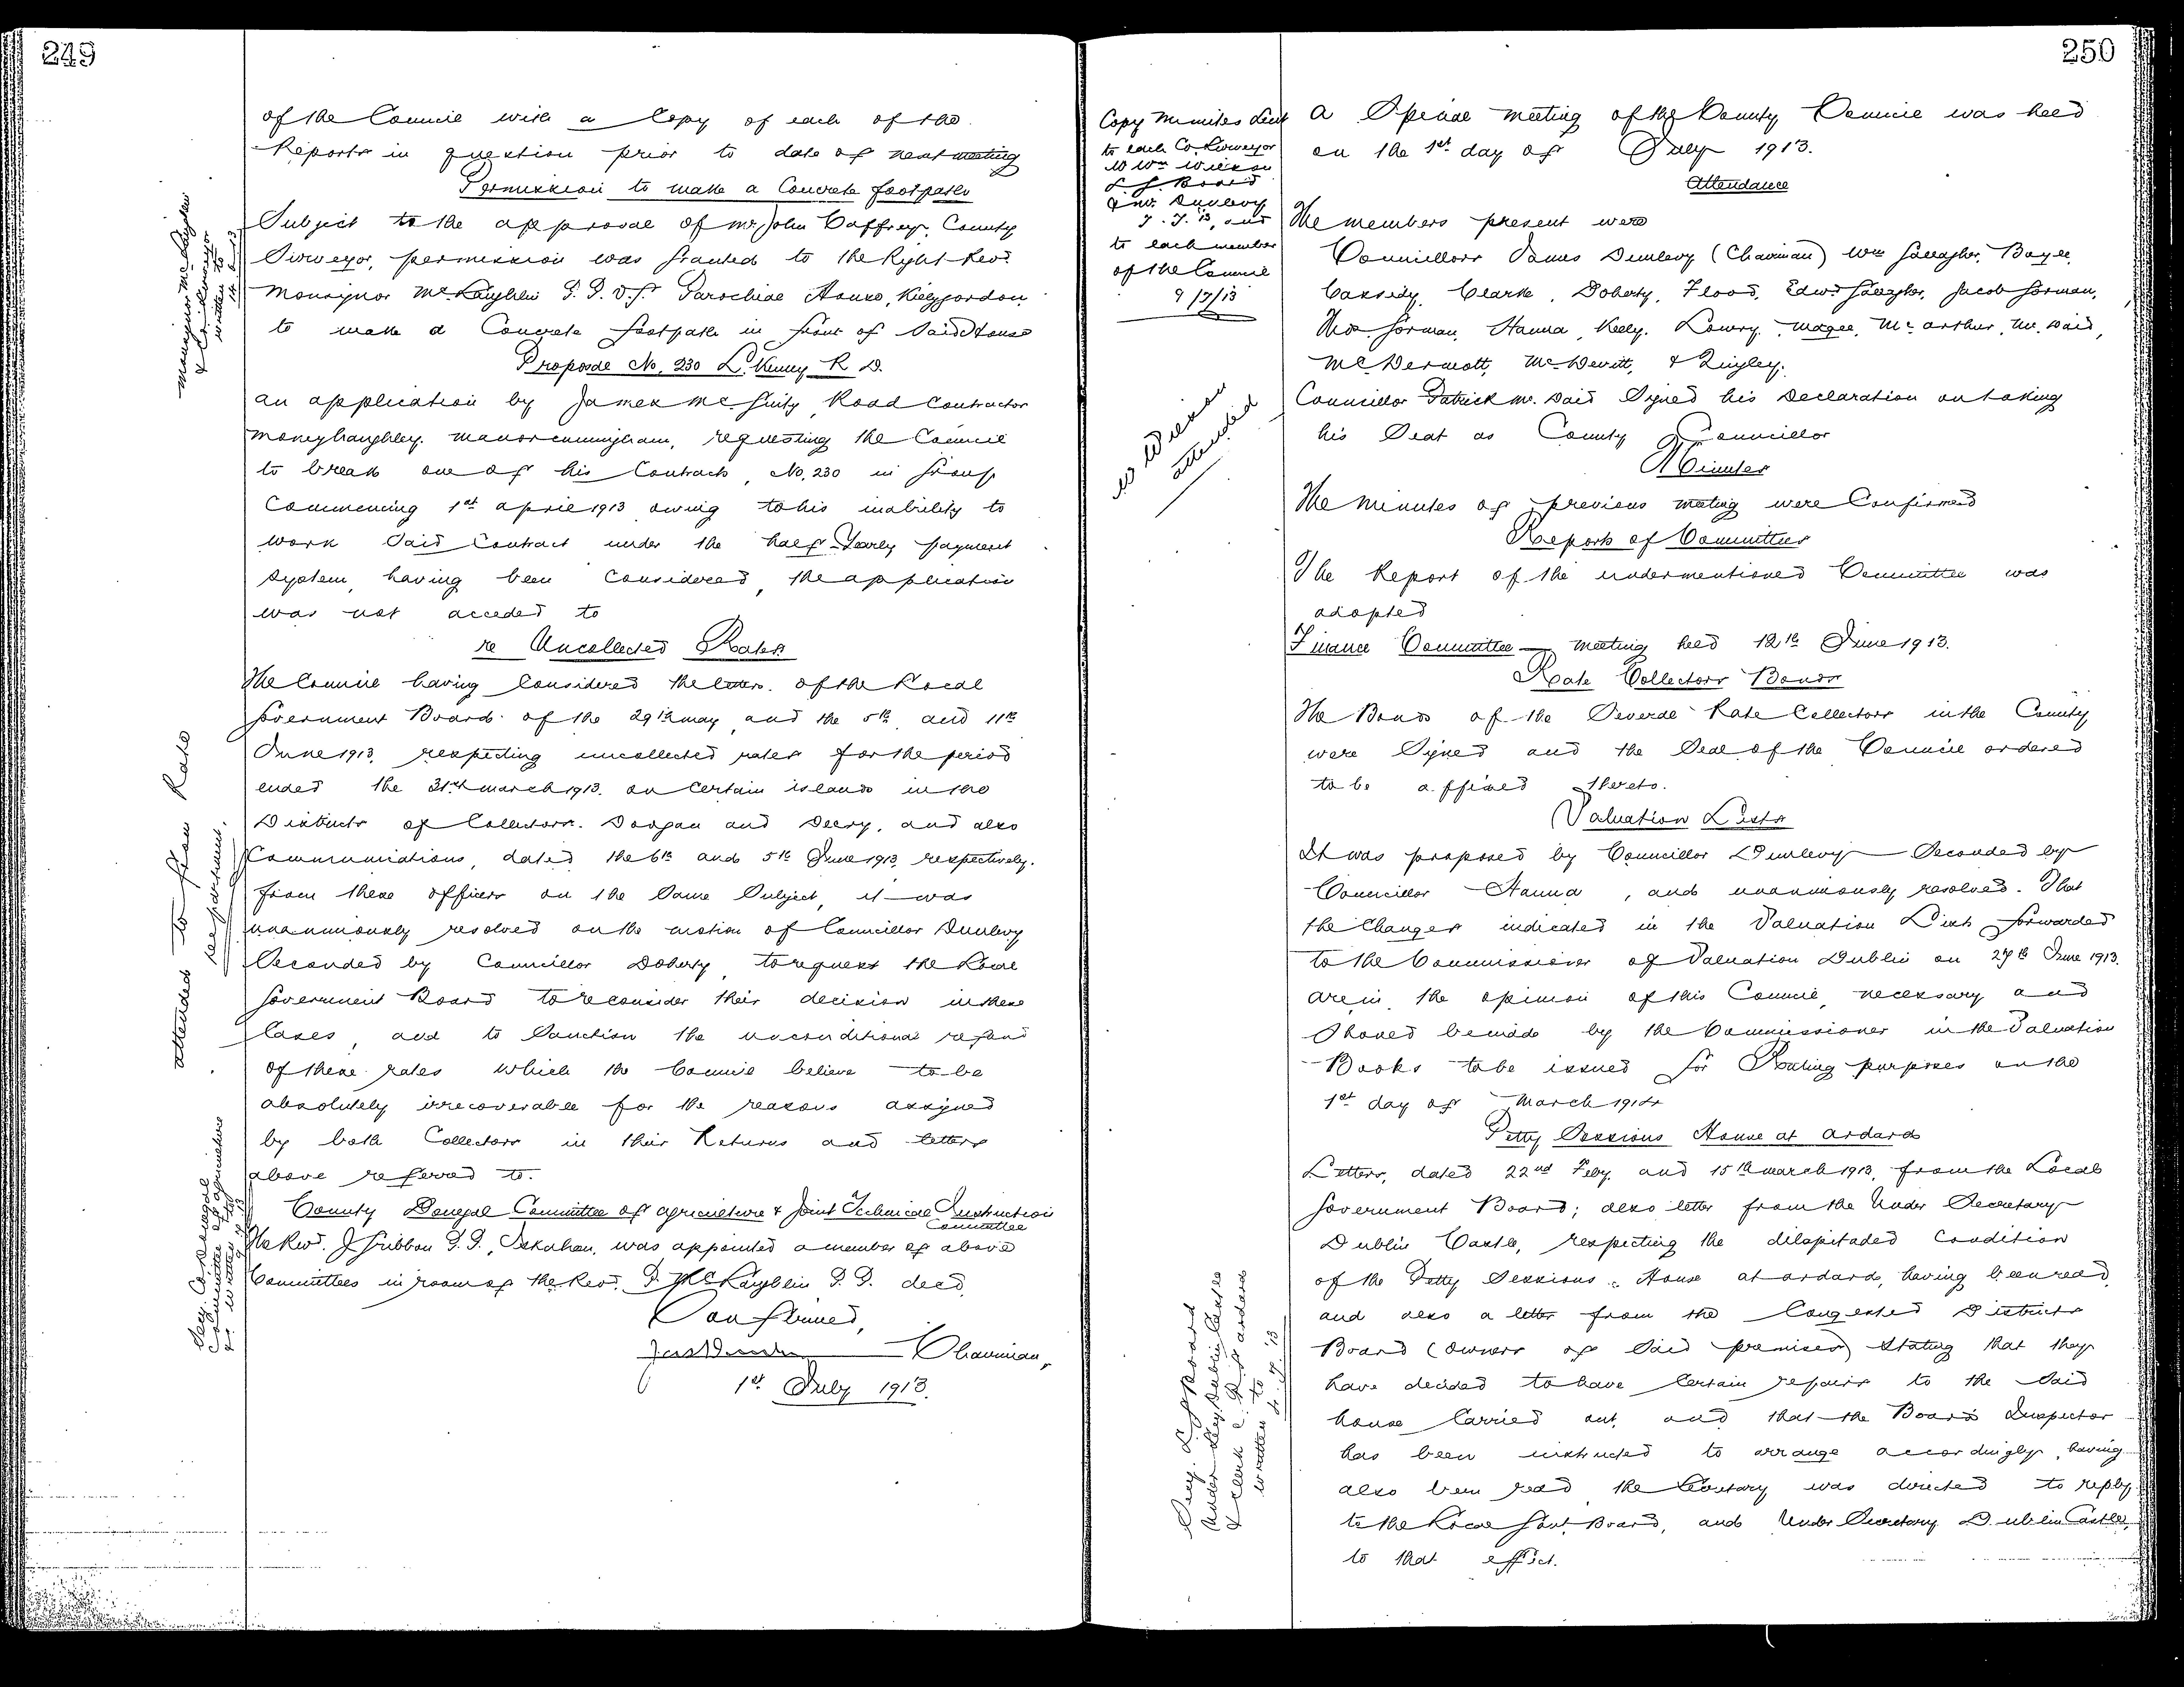 249
of the Council with a Copy of each of the
Reports in question prior to date of next meeting
Permission to make a Concrete footpath
Subject to the approval of Mr. John Caffrey, County
Surveyor, permission was granted to the Right Revd.
Monsignor McLaughlin P.P. V.F. Parochial House, Killygordon
to make a Concrete footpath in front of Said House
Proposal No. 230 L.Kenny R D.
an application by James McGinty Road Contractor
Moneyhaughley. Manorcunningham, requesting the Council
to break one of his Contracts, No. 230 in Group
Commencing 1st april 1913 owing to his inability to
work Said Contract under the half-Yearly payment
System, having been Considered, the application
was not acceded to
re Uncollected Rates
The Council having Considered the letters. of the Local
Government Board of the 29th may and the 5th and 11th
June 1913, respecting uncollected rates for the period
ended the 31st march 1913. on Certain islands in the
Districts of Collectors. Doogan and Deery, and also
Communications, dated the 6th and 5th June 1913, respectively.
from these officers on the Same Subject, it was
unanimously resolved on the motion of Councillor Dunlevy
Seconded by Councillor Doherty, to request the Local
Government Board to reconsider their decision in these
Cases, and to Sanction the unconditional refund
of these rates which the Council believe to be
absolutely irrecoverable for the reasons assigned
by both Collectors in their Returns and letters
above referred to.
County Donegal Committee of agriculture & Joint Technical Instruction
Committee
The Revd. J Gribbon P.P., Inkahan. was appointed a member of above
Committees in room of the Revd. P. McLaughlin P.P. decd.
Confirmed,
Jas Dunlevy Chairman,
1st July 1913.
Monsignor McLaughlin
& Co. Surveyor
written to
attended to from Rate
department.
Secy. Co. Donegal
Committee of agriculture
250
Copy Minutes Sent
to each Co. Surveyor
to Wm Wilson
L. G. Board
to each member
of the Council
9/7/13
attended
A Special meeting of the County Council was held
on the 1st day of July 1913.
Attendance
The members present were
Councillors James Dunlevy (Chairman) Wm Gallagher, Boyle,
Cassidy, Clarke, Doherty, Flood, Edwd Gallagher, Jacob Gorman,
Thos. Gorman, Hanna, Kelly, Lowry, Magee, McArthur, McDaid,
McDermott, McDevitt, & Quigley.
Councillor Patrick McDaid Signed his Declaration on taking
his Seat as County Councillor
Minutes
The Minutes of previous meeting were Confirmed
Reports of Committees
The Report of the undermentioned Committee was
adopted
Finance Committee — meeting held 12th June 1913.
Rate Collectors Bonds
The Bonds of the Several Rate Collectors in the County
were Signed and the Seal of the Council ordered
to be affixed thereto.
Valuation Lists
It was proposed by Councillor Dunlevy Seconded by
Councillor Hanna, and unanimously resolved. That
the Changes indicated in the Valuation Lists forwarded
to the Commissioner of Valuation Dublin on 27th June 1913.
are in the opinion of this Council, necessary and
Should be made by the Commissioner in the Valuation
Books to be issued for Rating purposes on the
1st day of March 1914
Petty Sessions House at Ardara
Letters, dated 22nd Feby. and 15th march 1913, from the Local
Government Board; also letter from the Under Secretary
Dublin Castle, respecting the dilapitaded Condition
of the Petty Sessions House at Ardara, having been read,
and also a letter from the Congested Districts
Board (owners of Said premises) Stating that they
have decided to have Certain repairs to the Said
house Carried out, and that the Boards Inspector
has been instructed to arrange accordingly, having
also been read the Secretary was directed to reply
to the Local Govt. Board, and Under Secretary Dublin Castle,
to that effect.
Secy. L. G. Board
Under Secy. Dublin Castle
written to